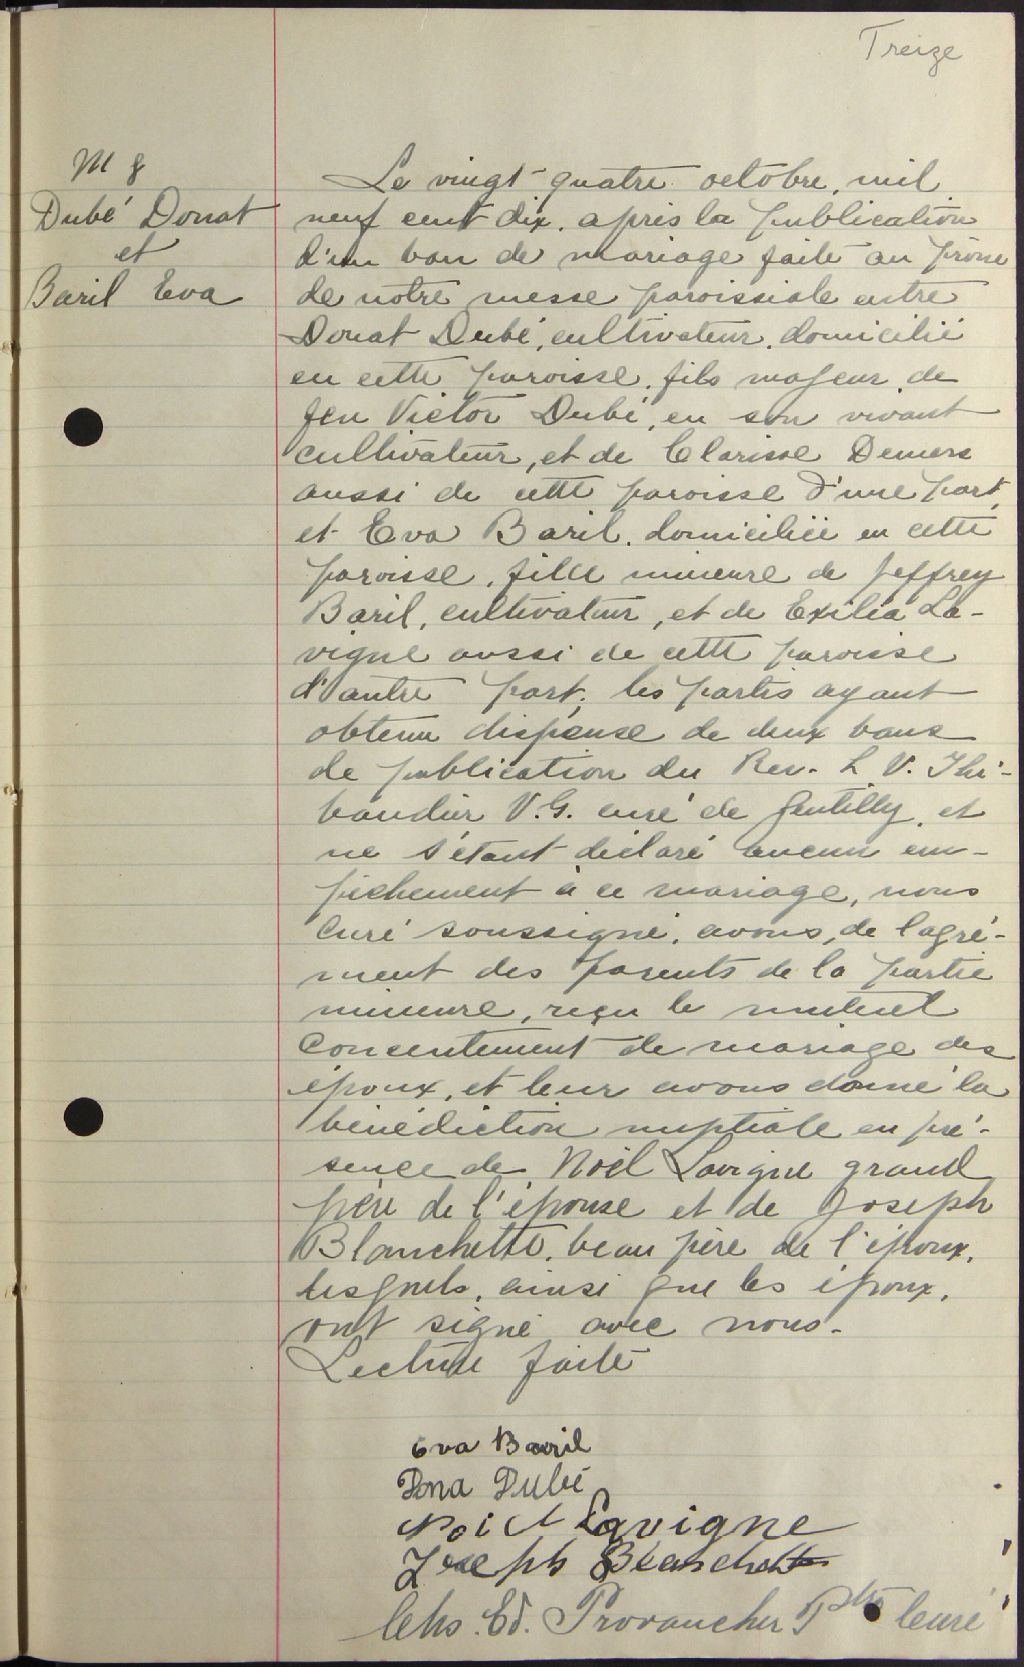 Treize
M 8
Dubé Donat
et
Baril Eva
Le vingt-quatre octobre, mil
neuf cent dix, après la publication
d'un ban de mariage faite au prône
de notre messe paroissiale entre
Donat Dubé, cultivateur, domicilié
en cette paroisse, fils majeur de
feu Victor Dubé, en son vivant
cultivateur, et de Clarisse Demers
aussi de cette paroisse d'une part,
et Eva Baril, domiciliée en cette
paroisse, fille mineure de Jeffrey
Baril, cultivateur, et de Exilia La-
vigne aussi de cette paroisse
d'autre part; les partis ayant
obtenu dispense de deux bans
de publication du Rev. L. V. Thi-
baudier V.G. curé de Gentilly, et
ne s'étant déclaré aucun em-
pêchement à ce mariage, nous
Curé soussigné, avons, de l'agré-
ment des parents de la partie
mineure, reçu le mutuel
consentement de mariage des
époux, et leur avons donné la
bénédiction nuptiale en pré-
sence de Noël Lavigne grand
père de l'épouse et de Joseph
Blanchette, beau père de l'époux,
lesquels, ainsi que les époux,
ont signé avec nous.
Lecture faite
Eva Baril
Dona Dubé
Noil Lavigne
Joseph Blanchette
Chs. Ed. Provancher Ptre Curé